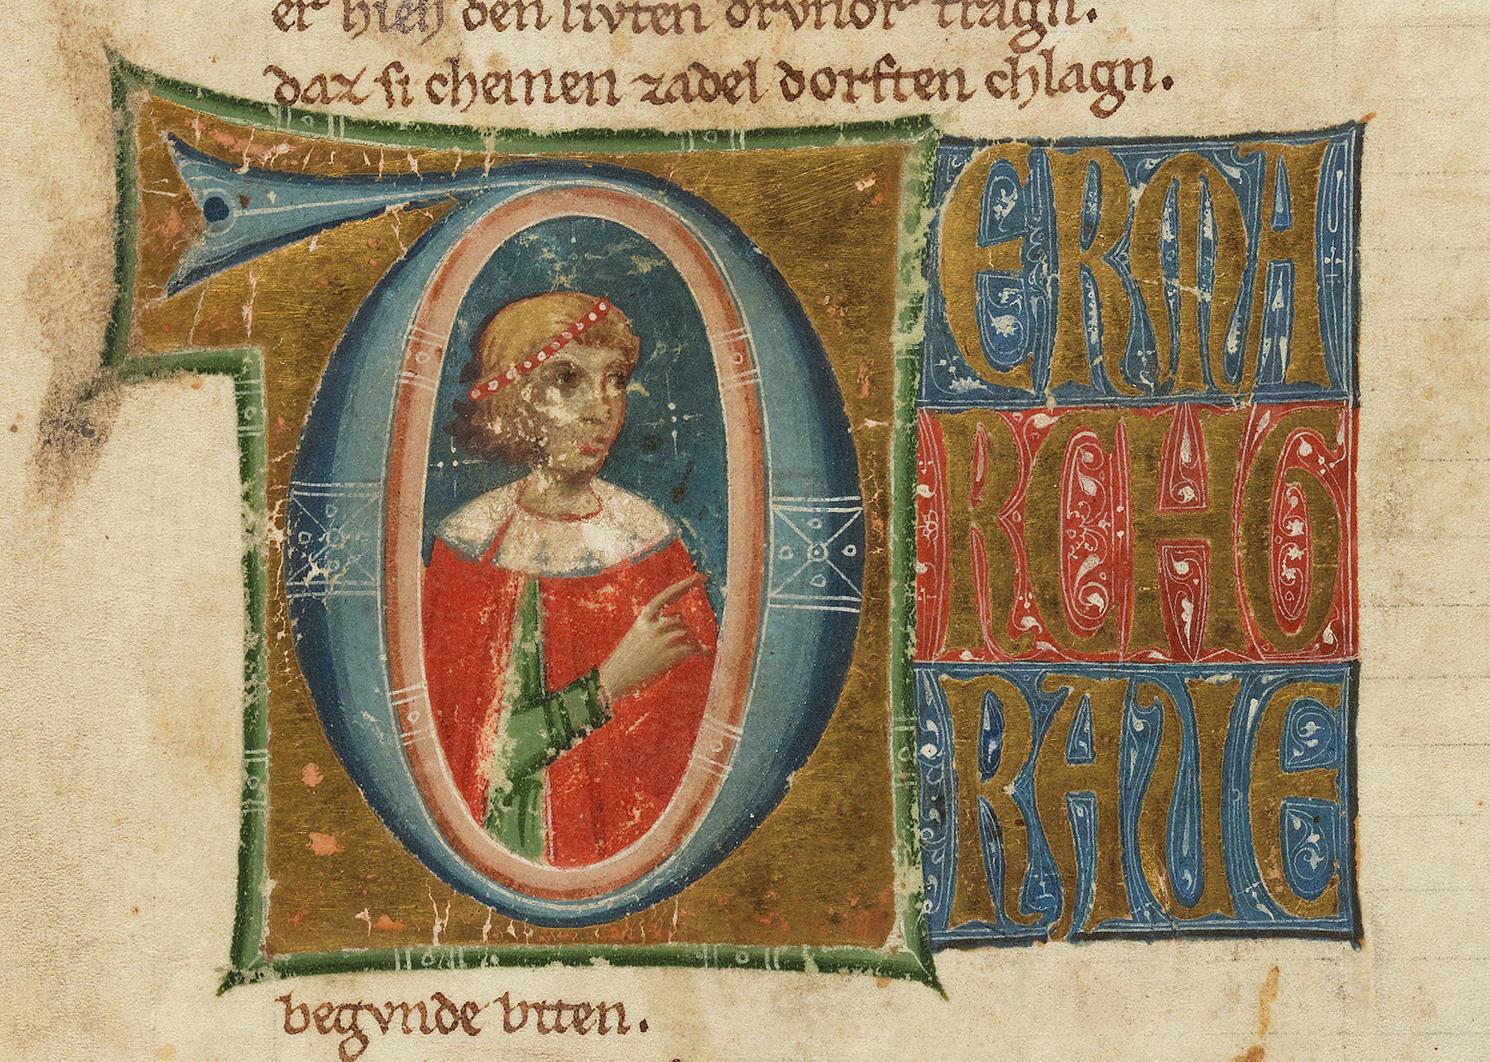 er hiez den livten drvnor tragn.
daz si cheinen zadel dorften chlagn.
D ERMA
RCHG
RAVE
begvnde bitten.